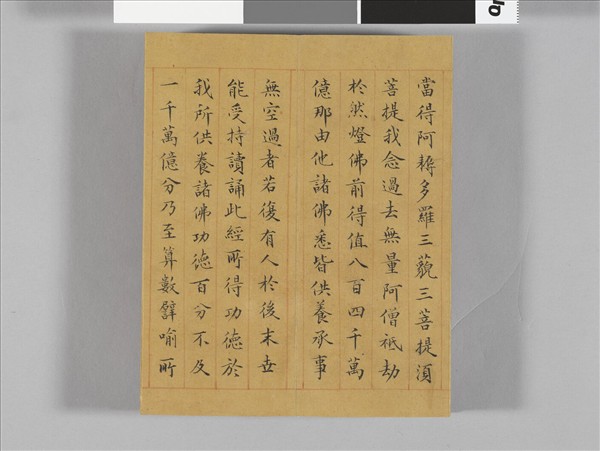 當得阿耨多羅三藐三菩提須
菩提我念過去無量阿僧祇劫
於然燈佛前得值八百四千萬
億那由他諸佛悉皆供養承事
無空過者若復有人於後末世
能受持讀誦此經所得功德於
我所供養諸佛功德百分不及
一千萬億分乃至算數譬喻所